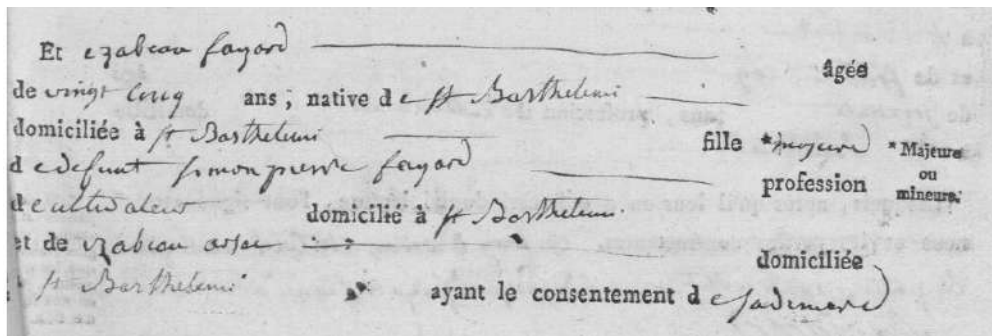 Et ezabeau fayard âgée
de vingt cinq ans ; native de st Barthelemi
domiciliée à st Barthelemi fille *majeure * Majeure
ou
mineure.
de defunt simon pierre fayard profession
de cultivateur domicilié à st Barthelemi
et de ezabeau arsac domiciliée
à st Barthelemi ayant le consentement de sadi mere